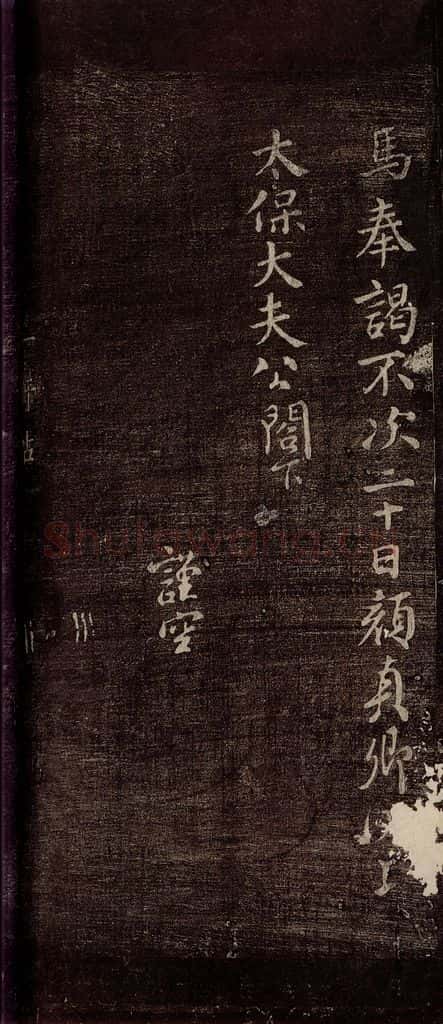 馬奉謁不次二十日顏真卿
太保大夫公閤下
謹空
Shufawang.cn